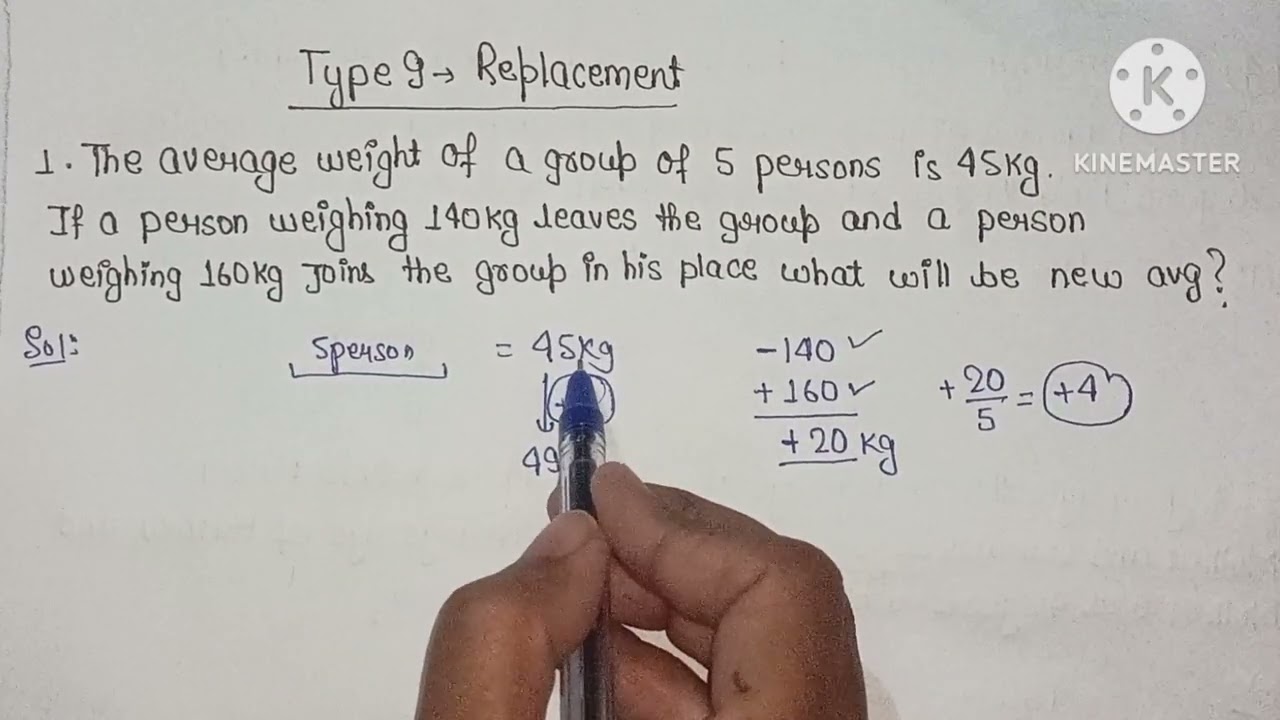 Type 9 → Replacement
K
KINEMASTER
1. The average weight of a group of 5 persons is 45kg.
If a person weighing 140kg leaves the group and a person
weighing 160kg joins the group in his place what will be new avg?
Sol:
5person = 45kg
49
-140 ✓
+160 ✓
+20 kg
+ 20/5 = +4